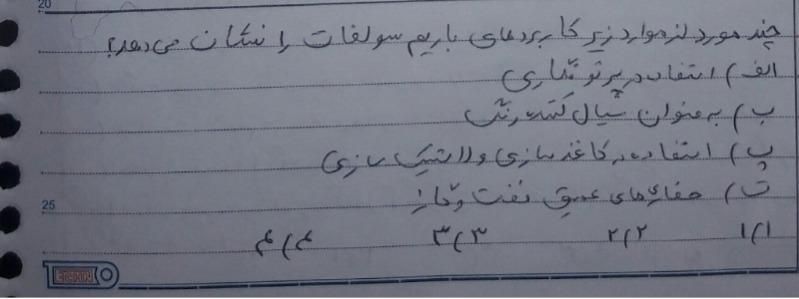 20
چند مورد از موارد زیر کاربردهای باریم سولفات را نشان می‌دهد؟
الف) استفاده در پرتونگاری
ب) به عنوان سیال کننده رنگ
پ) استفاده در کاغذسازی و لاستیک سازی
ت) حفاری‌های عمیق نفت و گاز
25
۱) ۱ ۲) ۲ ۳) ۳ ۴) ۴